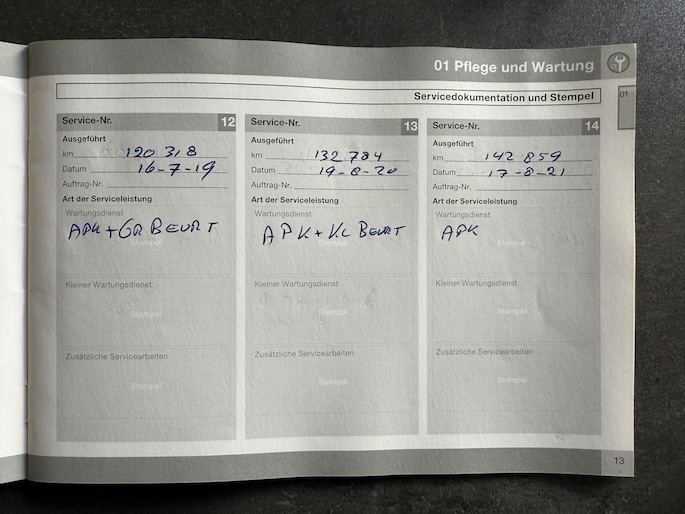 01 Pflege und Wartung
01
Servicedokumentation und Stempel
Service-Nr. 12
Ausgeführt
km 120 318
Datum 16-7-19
Auftrag-Nr.
Art der Serviceleistung
Wartungsdienst
APK + GR BEURT
Stempel
Kleiner Wartungsdienst
Stempel
Zusätzliche Servicearbeiten
Stempel
Service-Nr. 13
Ausgeführt
km 132 784
Datum 19-8-20
Auftrag-Nr.
Art der Serviceleistung
Wartungsdienst
APK + KL BEURT
Stempel
Kleiner Wartungsdienst
Stempel
Zusätzliche Servicearbeiten
Stempel
Service-Nr. 14
Ausgeführt
km 142 859
Datum 17-8-21
Auftrag-Nr.
Art der Serviceleistung
Wartungsdienst
APK
Stempel
Kleiner Wartungsdienst
Stempel
Zusätzliche Servicearbeiten
Stempel
13